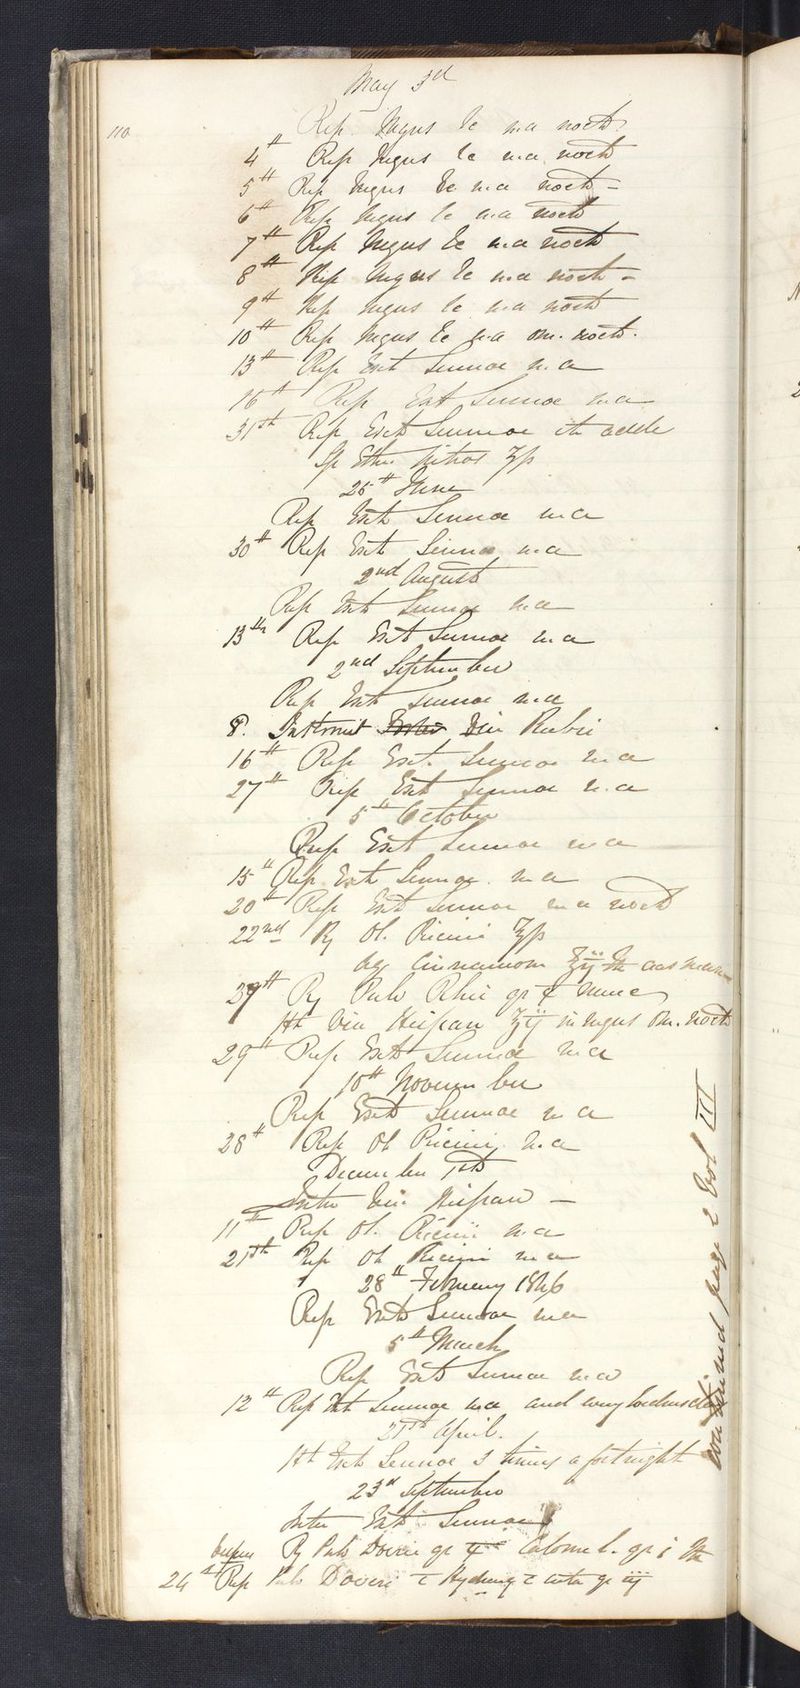 May 3rd
110
Rep. Negus &c m.a nocte.
4th Rep Negus &c m.a. nocte
5th Rep Negus &c m.a nocte -
6th Rep Negus &c m.a nocte
7th Rep Negus &c m.a nocte
8th Rep Negus &c m.a nocte -
9th Rep Negus &c m.a nocte
10th Rep Negus &c m.a om. nocte.
13th Rep Ext Sennae m.a
16th Rep Ext Sennae m.a
31st Rep Ext Sennae et adde
Sp Ether Nitros ʒſs
25th June
Rep Ext Sennae m.a
30th Rep Ext Sennae m.a
2nd August
Rep Ext Sennae m.a
13th Rep Ext Sennae m.a
2nd September
Rep Ext Sennae m.a
8. Intermit Vin Rubri
16th Rep Ext. Sennae m.a
27th Rep Ext Sennae m.a
5th October
Rep Ext Sennae m.a
15th Rep. Ext Sennae m.a
20th Rep Ext Sennae m.a nocte
22nd ℞ Ol. Ricini ℥ſs
Aq Cinnamom
27th ℞ Pulv Rhei gr nunc
Ht Vin Hispan ℥ij in negus om. nocte
29th Rep Ext Sennae m.a
10th November
Rep Ext Sennae m.a
28th Rep Ol Ricini m.a
December 1st
Inter Vin Hispan -
11th Rep Ol. Ricini m.a
21st Rep Ol Ricini m.a
28th February 1846
Rep Ext Sennae m.a
5th March
Rep Ext Sennae m.a
12th Rep Ext Sennae m.a and
21st April.
Ht Ext Sennae 3 times a fortnight
23rd September
Inter Ext Sennae
Vespere ℞ Pulv Doveri gr Calomel. gr i
24th Rep Pulv Doveri c Hydrarg c creta gr iij
continued page 2 Vol III